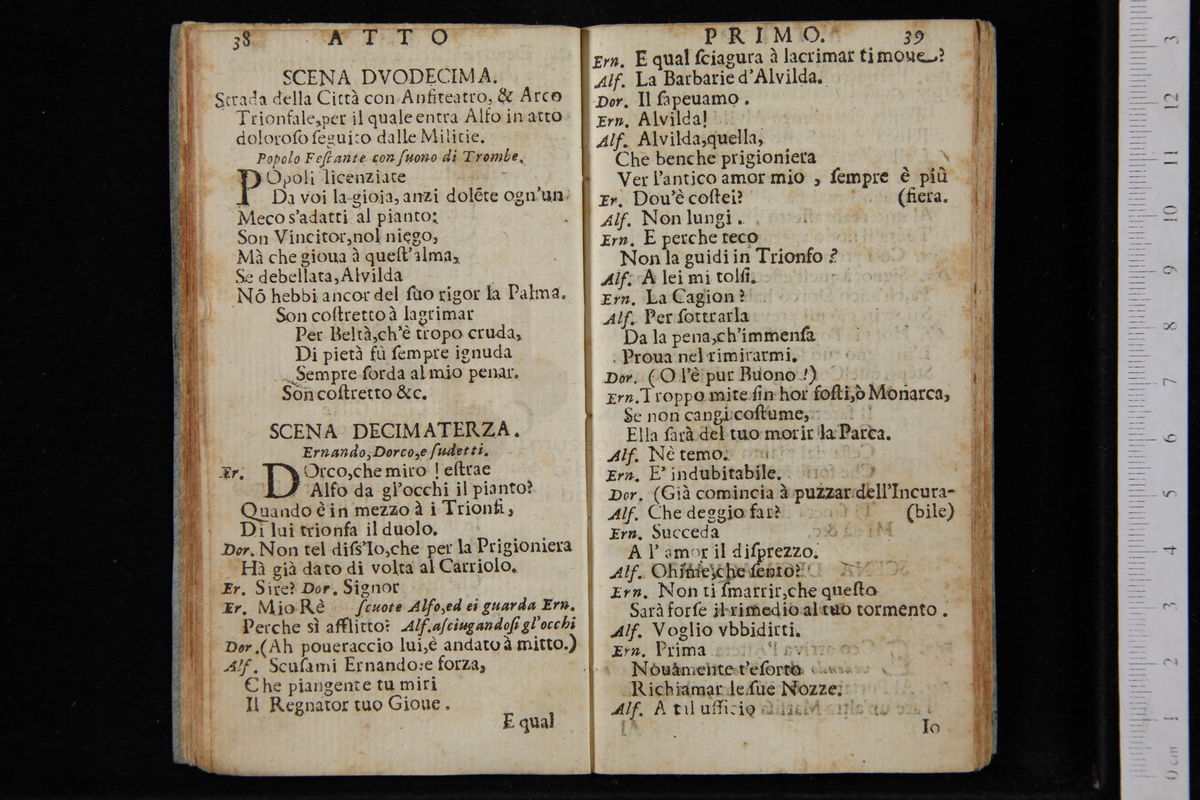 38 ATTO
SCENA DVODECIMA.
Strada della Città con Anfiteatro, & Arco
Trionfale,per il quale entra Alfo in atto
doloroſo ſeguito dalle Militie.
Popolo Feſtante con ſuono di Trombe.
POpoli licenziate
Da voi la gioia, anzi dolẽte ogn'un
Meco s'adatti al pianto;
Son Vincitor,nol niego,
Mà che gioua à queſt'alma,
Se debellata,Alvilda
Nõ hebbi ancor del ſuo rigor la Palma.
Son coſtretto à lagrimar
Per Beltà,ch'è tropo cruda,
Di pietà fù ſempre ignuda
Sempre ſorda al mio penar.
Son coſtretto &c.
SCENA DECIMATERZA.
Ernando,Dorco,e ſudetti.
Er. DOrco,che miro ! eſtrae
Alfo da gl'occhi il pianto?
Quando è in mezzo à i Trionfi,
Di lui trionfa il duolo.
Dor. Non tel diſs'Io,che per la Prigioniera
Hà già dato di volta al Carriolo.
Er. Sire? Dor. Signor
Er. Mio Rè ſcuote Alfo,ed ei guarda Ern.
Perche sì afflitto? Alf.aſciugandoſi gl'occhi
Dor.(Ah poueraccio lui,è andato à mitto.)
Alf. Scuſami Ernando:e forza,
Che piangente tu miri
Il Regnator tuo Gioue.
E qual
PRIMO. 39
Ern. E qual ſciagura à lacrimar ti moue?
Alf. La Barbarie d'Alvilda.
Dor. Il ſapeuamo.
Ern. Alvilda!
Alf. Alvilda,quella,
Che benche prigioniera
Ver l'antico amor mio , ſempre è più
Er. Dou'è coſtei? (fiera.
Alf. Non lungi.
Ern. E perche teco
Non la guidi in Trionfo?
Alf. A lei mi tolſi.
Ern. La Cagion?
Alf. Per ſottrarla
Da la pena,ch'immenſa
Proua nel rimirarmi.
Dor. (O l'è pur Buono!)
Ern.Troppo mite ſin hor foſti,ò Monarca,
Se non cangi coſtume,
Ella ſarà del tuo morir la Parca.
Alf. Nè temo.
Ern. E' indubitabile.
Dor. (Già comincia à puzzar dell'Incura-
Alf. Che deggio far? (bile)
Ern. Succeda
A l' amor il diſprezzo.
Alf. Ohime,che ſento?
Ern. Non ti ſmarrir,che queſto
Sarà forſe il rimedio al tuo tormento.
Alf. Voglio vbbidirti.
Ern. Prima
Nouamente t'eſorto
Richiamar le ſue Nozze.
Alf. A til ufficio
Io